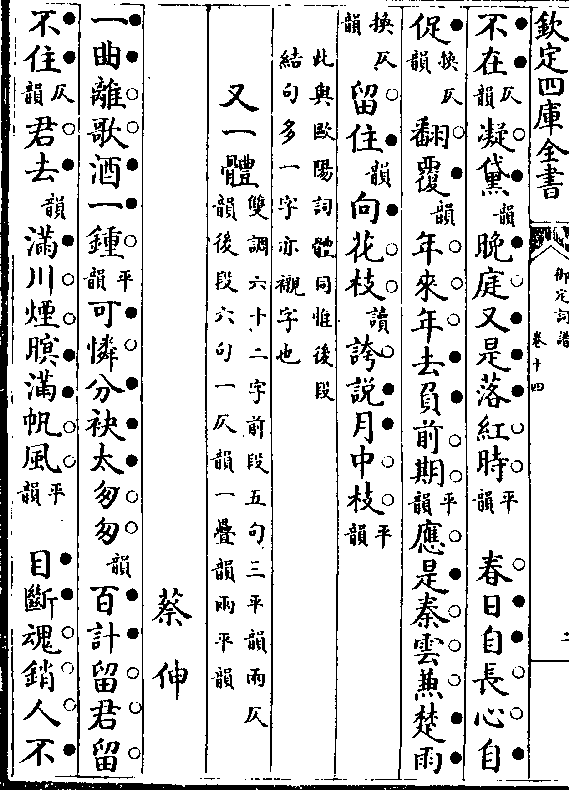 欽定四庫全書
御定詞譜
卷十四
二
不在仄韻凝黛韻晚庭又是落紅時平韻　春日自長心自
促換仄韻翻覆韻年來年去負前期平韻應是秦雲兼楚雨
換仄韻留住韻向花枝讀誇説月中枝平韻
此與歐陽詞體同惟後段
結句多一字亦襯字也
又一體雙調六十二字前段五句三平韻兩仄
韻後段六句一仄韻一疊韻兩平韻
蔡伸
一曲離歌酒一鍾平韻可憐分袂太匆匆韻百計留君留
不住仄韻君去韻滿川煙暝滿帆風平韻　目斷魂銷人不